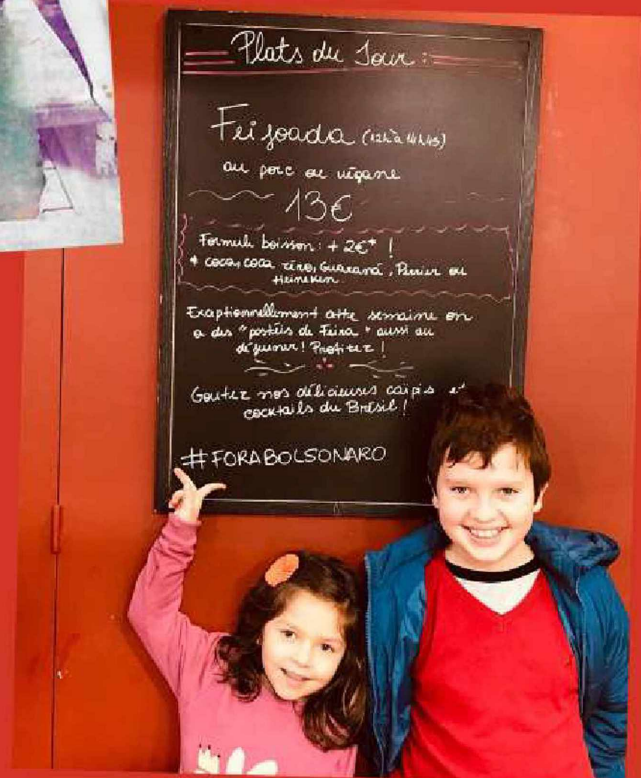 Plats du Jour :
Feijoada (12h à 14h45)
au porc ou végane
13€
Formule boisson : + 2€* !
* coca, coca zéro, Guaraná, Perrier ou
Heineken
Exceptionnellement cette semaine on
a des "pastéis de Feira" aussi au
déjeuner ! Profitez !
Goutez nos délicieuses caipis et
cocktails du Brésil !
#FORABOLSONARO